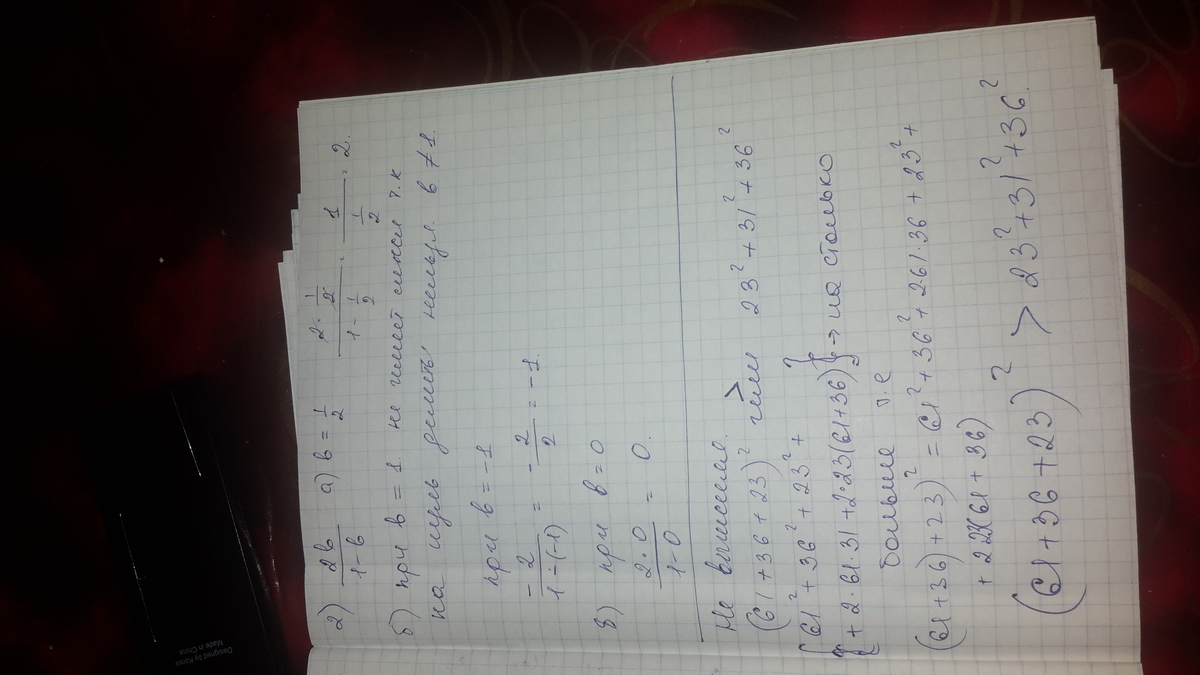 2) 2b/1-b а) b = 1/2 2·1/2 / 1-1/2 = 1 / 1/2 = 2.
б) при b = 1 не имеет смысл т.к
на нуль делить нельзя b ≠ 1.
при b = -1
-2/1-(-1) = -2/2 = -1.
в) при b = 0
2·0/1-0 = 0.
Не вычисляя.
(61+36+23)² > или 23²+31²+36²
{61²+36²+23²+
+2·61·31+2·23(61+36)} → на столько
больше т.е
(61+36)+23)² = 61²+36²+261·36+23²+
+223(61+36)
(61+36+23)² > 23²+31²+36².
Designed by Korea
Made in China